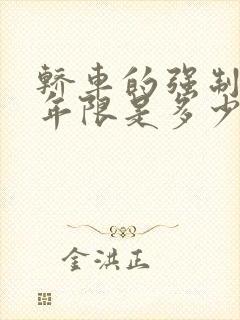 轿车的强制
年限是多少
金洪正